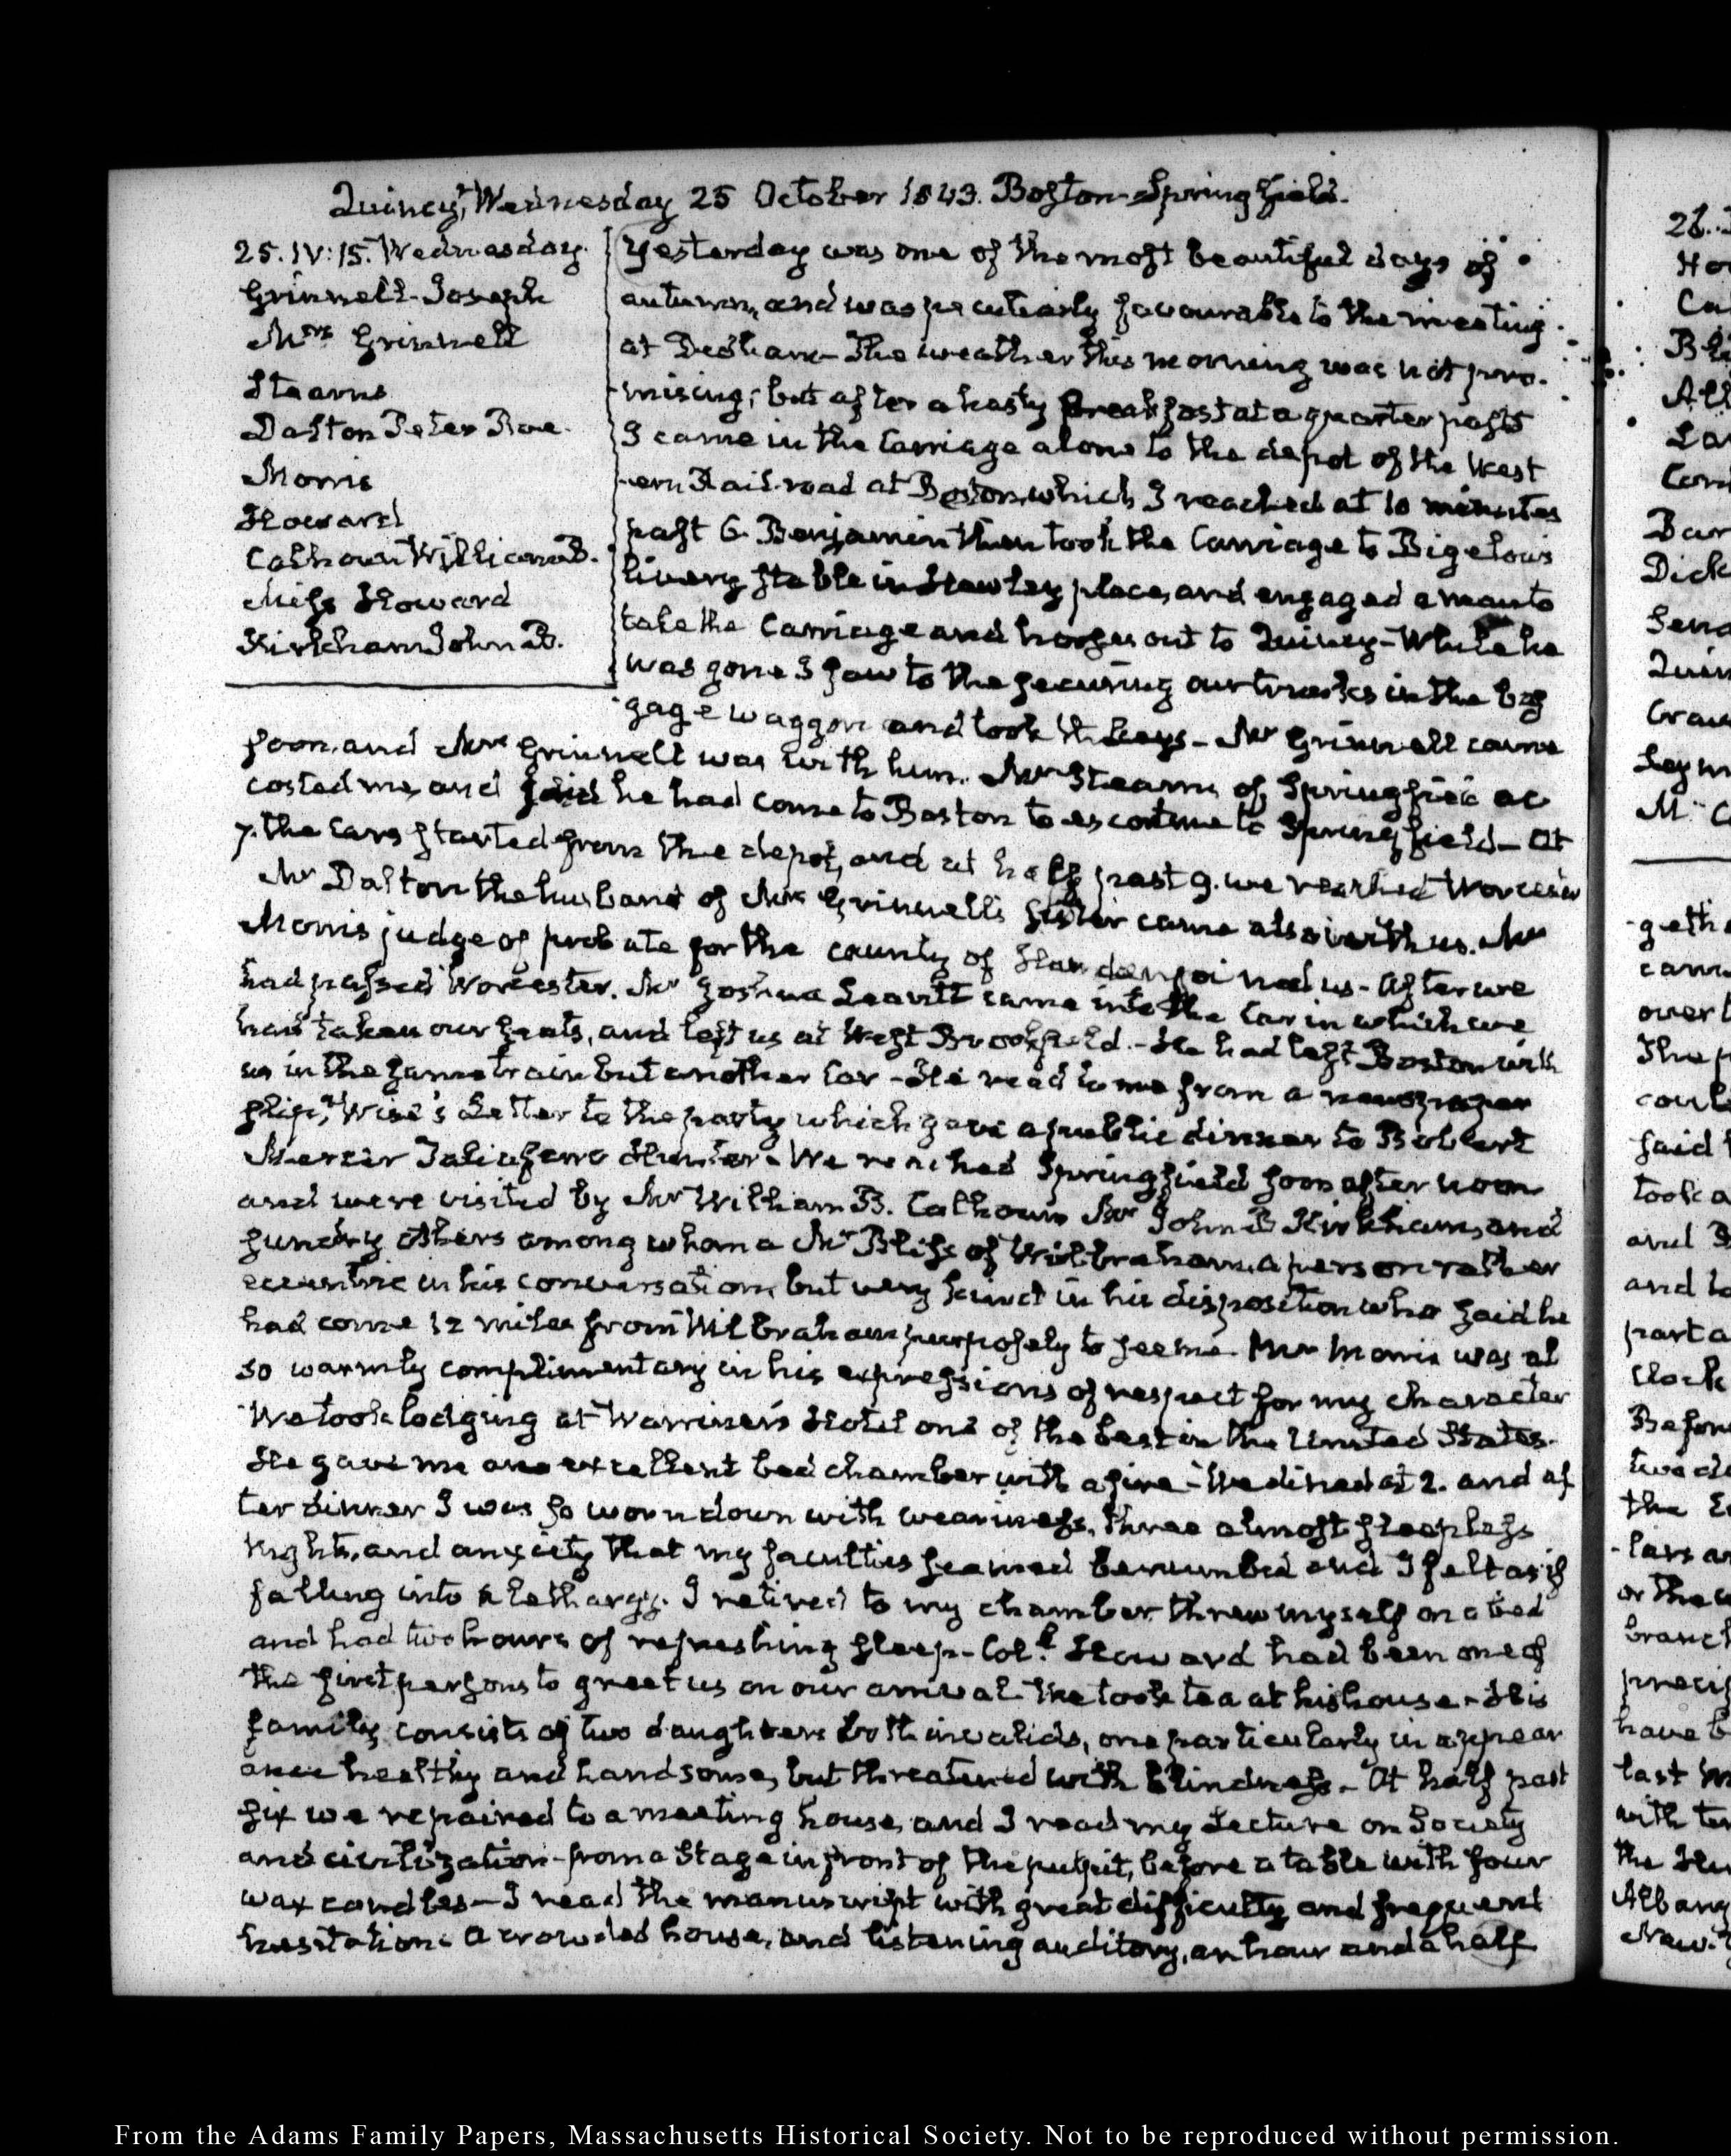 Quincy, Wednesday 25 October 1843. Boston-Springfield.
25. IV:15. Wednesday.
Grinnell-Joseph
Mrs Grinnell
Stearns
Dalton Peter Roe.
Morris
Howard
Calhoun William B.
Miss Howard
Kirkham John B.
Yesterday was one of the most beautiful days of
autumn, and was peculiarly favourable to the meeting
at Dedham- The weather this morning was not pro-
mising; but after a hasty breakfast at a quarter past 5
I came in the Carriage alone to the depot of the West
-ern Rail-road at Boston, which I reached at 10 minutes
past 6. Benjamin then took the Carriage to Bigelow's
livery stable in Hawley place, and engaged a man to
take the Carriage and horses out to Quincy- While he
was gone I saw to the securing our trunks in the bag
gage waggon and took the keys- Mr Grinnell came
soon, and Mrs Grinnell was with him. Mr Stearns of Springfield ac
costed me, and said he had come to Boston to escort me to Springfield- At
7. the Cars started from the depot, and at half past 9. we reached Worcester
Mr Dalton the husband of Mrs Grinnell's sister came also with us. Mr
Morris judge of probate for the county of Hampden joined us- After we
had passed Worcester. Mr Joshua Leavitt came into the Car in which we
had taken our seats, and left us at West Brookfield.- He had left Boston with
us in the same train but another Car- He read to me from a newspaper
slip, Wise's Letter to the party which gave a public dinner to Robert
Mercer Taliaferro Hunter- We reached Springfield soon after noon
and were visited by Mr William B. Calhoun Mr John B Kirkham, and
sundry others among whom a Mr Bliss of Wilbraham, a person rather
eccentric in his conversation, but very kind in his disposition who said he
had come 12 miles from Wilbraham purposely to see me. Mr Morris was al
so warmly complimentary in his expressions of respect for my character
We took lodging at Warriner's Hotel one of the best in the United States.
He gave me an excellent bed chamber with a fire- We dined at 2. and af
ter dinner I was so worn down with weariness, three almost sleepless
Nights, and anxiety that my faculties seemed benumbed and I felt as if
falling into a lethargy. I retired to my chamber threw myself on a bed
and had two hours of refreshing sleep- Col.l Howard had been one of
the first persons to greet us on our arrival We took tea at his house- His
family consists of two daughters both invalids, one particularly in appear
ance healthy and handsome, but threatened with blindness.- At half past
six we repaired to a meeting house, and I read my Lecture on Society
and civilization- from a Stage in front of the pulpit, before a table with four
wax candles- I read the manuscript with great difficulty and frequent
hesitation- A crowded house, and listening auditory, an hour and a half
From the Adams Family Papers, Massachusetts Historical Society. Not to be reproduced without permission.